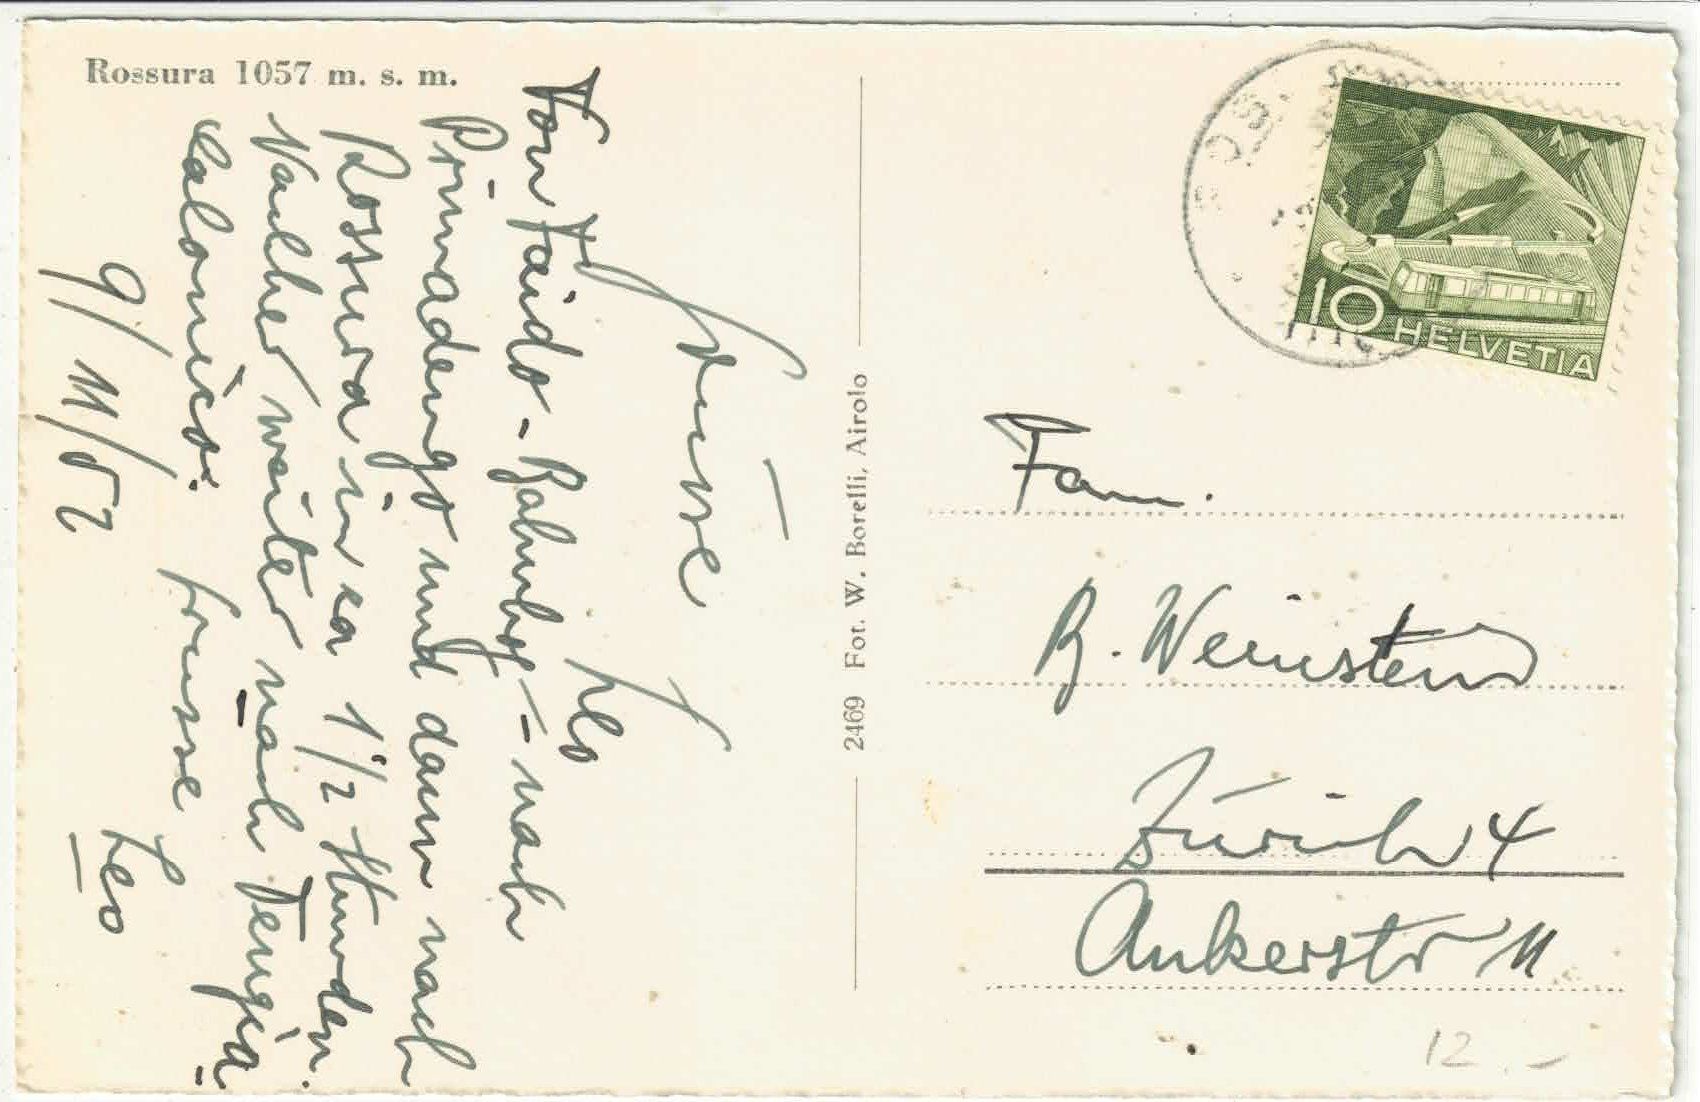 Rossura 1057 m. s. m.
Von Faido-Bahnhof - nach
Primadengo und dann nach
Rossura in ca 1 1/2 Stunden.
Nachher weiter nach Tengia-
Calonico.
9/11/52
Leo
2469 Fot. W. Borelli, Airolo
10 HELVETIA
Fam.
R. Weinstein
Zürich 4
Ankerstr 11
12.-